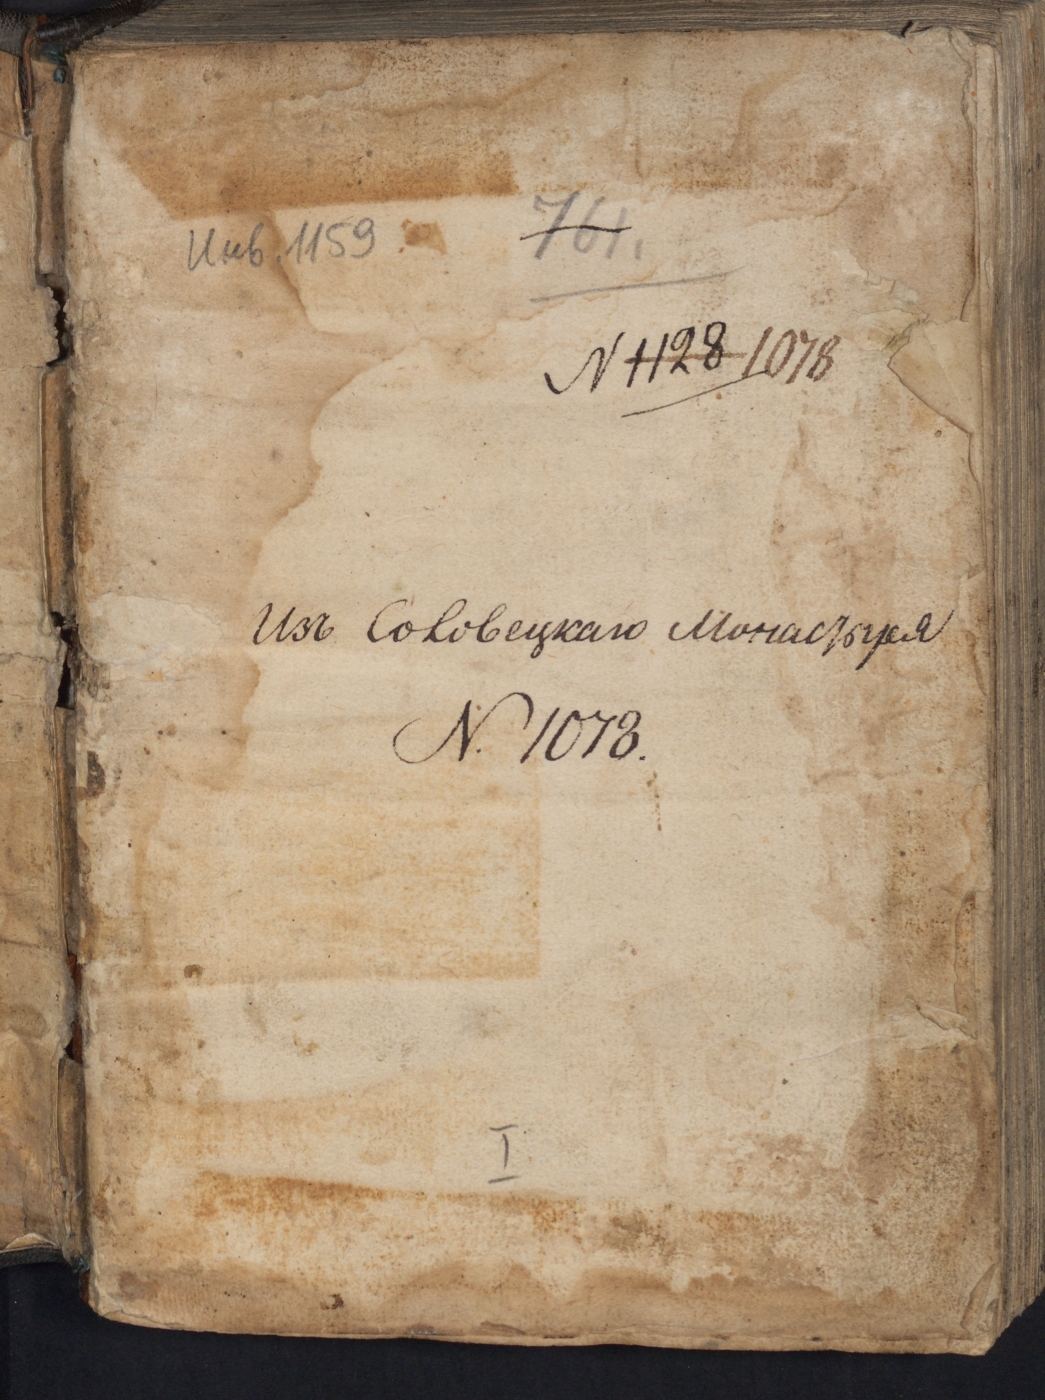 Инв. 1159
761.
N 1128 1078
Изъ Соловецкаго Монастыря
N. 1078.
I